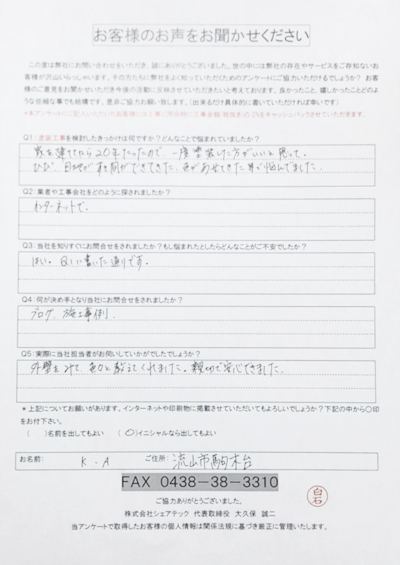 お客様のお声をお聞かせください
この度は弊社にお問い合わせをいただき、誠にありがとうございました。世の中には弊社の存在やサービスをご存知ないお
客様が沢山いらっしゃいます。その方たちにも弊社をよく知っていただくためのアンケートにご協力いただけるでしょうか？ お客
様のご意見をお聞かせいただき今後の活動に反映させていただきたいと考えております。良かったこと、嬉しかったことどのよ
うな些細な事でも結構です。是非ご協力お願い致します。(出来るだけ具体的に書いていただければ幸いです)
Q1:塗装工事を検討したきっかけは何ですか？どんなことで悩まれていましたか？
家を建ててから20年たったので一度塗装した方がいいと思って。
ひび、目地が ができてきた。色があせてきた事で悩んでました。
Q2:業者や工事会社をどのように探されましたか？
インターネットで。
Q3:当社を知りすぐにお問合せをされましたか？もし悩まれたとしたらどんなことがご不安でしたか？
はい。Q1に書いた通りです。
Q4:何が決め手となり当社にお問合せをされましたか？
ブログ、施工事例。
Q5:実際に当社担当者がお伺いしていかがでしたでしょうか？
外壁をみて、色々と教えてくれました。親切で安心できました。
＊上記についてお願いがあります。インターネットや印刷物に掲載させていただいてもよろしいでしょうか？下記の中から〇印
をお付下さい。
( )名前を出してもよい (〇)イニシャルなら出してもよい
お名前: K.A ご住所: 流山市駒木台
FAX 0438-38-3310
ご協力ありがとうございました。
株式会社シェアテック 代表取締役 大久保 誠二
当アンケートで取得したお客様の個人情報は関係法規に基づき厳正に管理いたします。
白石